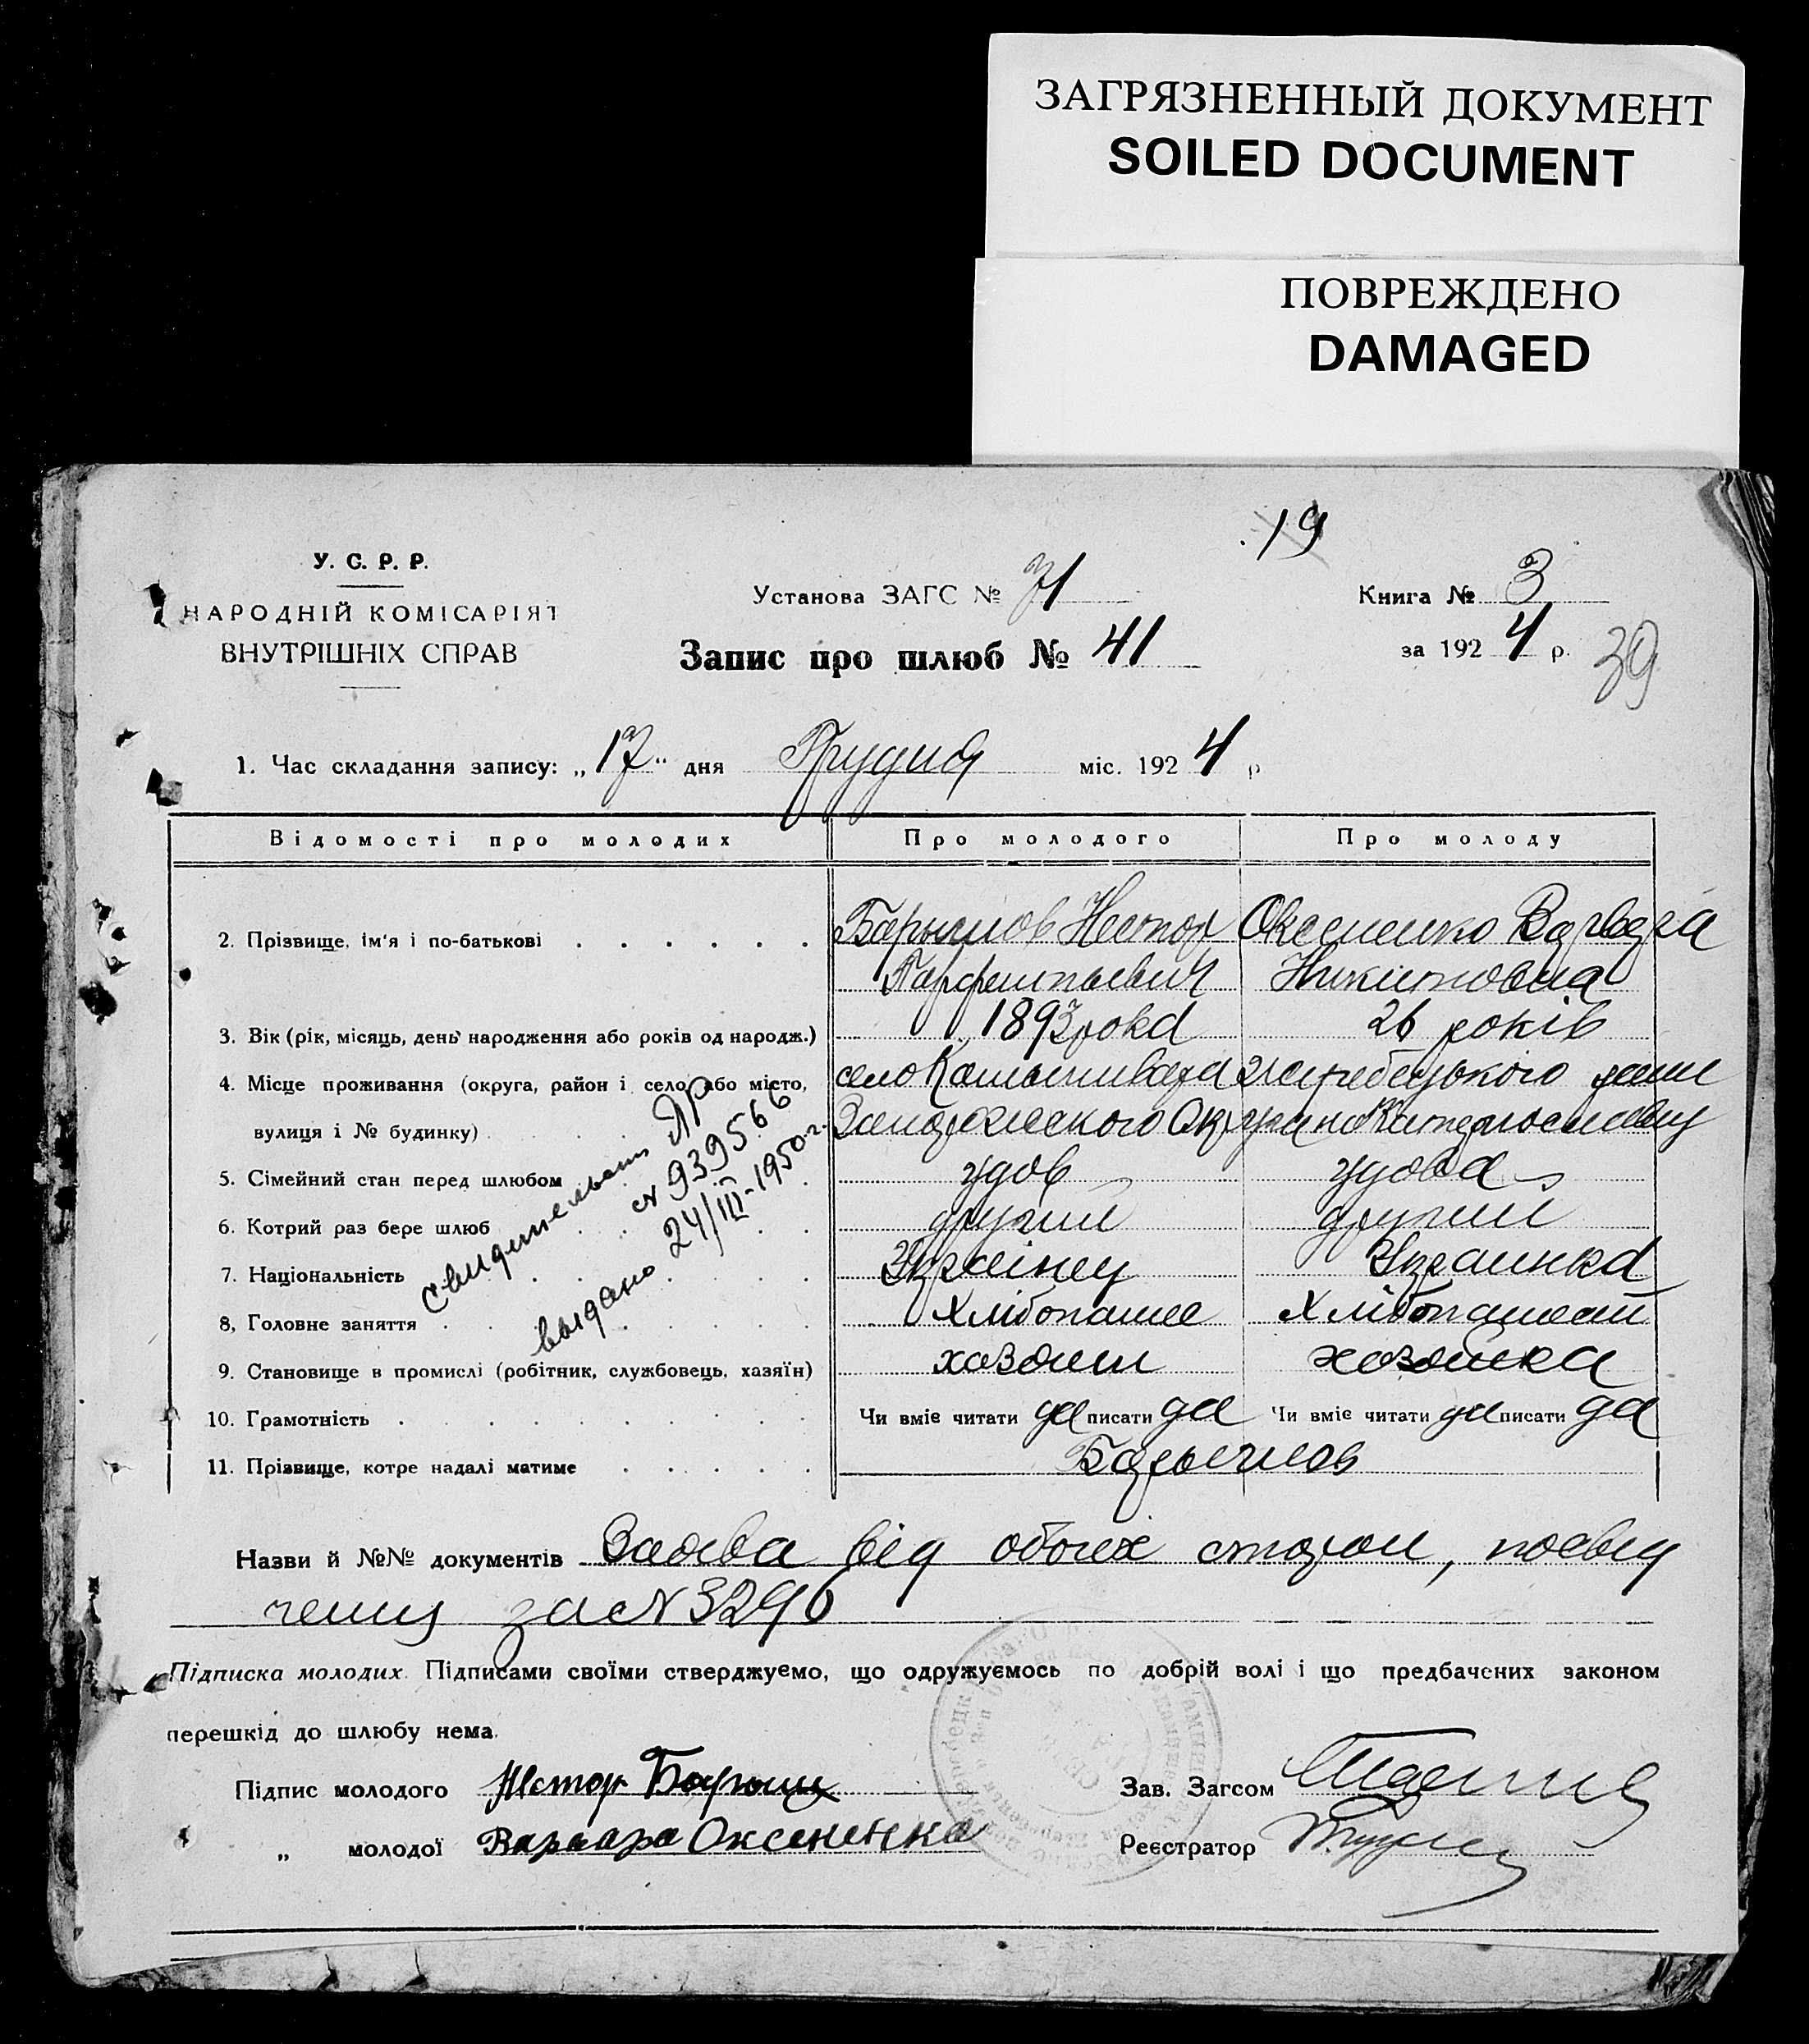 ЗАГРЯЗНЕННЫЙ ДОКУМЕНТ
SOILED DOCUMENT
ПОВРЕЖДЕНО
DAMAGED
19
У. С. Р. Р.
НАРОДНІЙ КОМІСАРІЯТ
ВНУТРІШНІХ СПРАВ
Установа ЗАГС № 71
Книга № 3
Запис про шлюб № 41
за 1924 р.
39
1. Час складання запису: „17“ дня Грудня міс. 1924 р
Відомості про молодих Про молодого Про молоду
2. Прізвище, ім'я і по-батькові Нестор Оксененко Варвара
Парфентьевич Никитовна
3. Вік (рік, місяць, день народження або років од народж.) 1893 рока 26 років
4. Місце проживання (округа, район і село або місто, село
вулиця і № будинку)
5. Сімейний стан перед шлюбом удов удова
6. Котрий раз бере шлюб другий другий
7. Національність Українец Украинка
8, Головне заняття Хлібопашес
9. Становище в промислі (робітник, службовець, хазяїн) хозяин хозяйка
10. Грамотність Чи вміє читати да писати да Чи вміє читати да писати да
11. Прізвище, котре надалі матиме
свидетельство ЯР
№ 939566
выдано 24/III-1950 г.
Назви й №№ документів Заява від обоех сторон, посвід
чену за № 3296
Підписка молодих. Підписами своїми стверджуємо, що одружуємось по добрій волі і що предбачених законом
перешкід до шлюбу нема.
Підпис молодого Нестор
Зав. Загсом
„ молодої Варвара Оксененко
Реєстратор